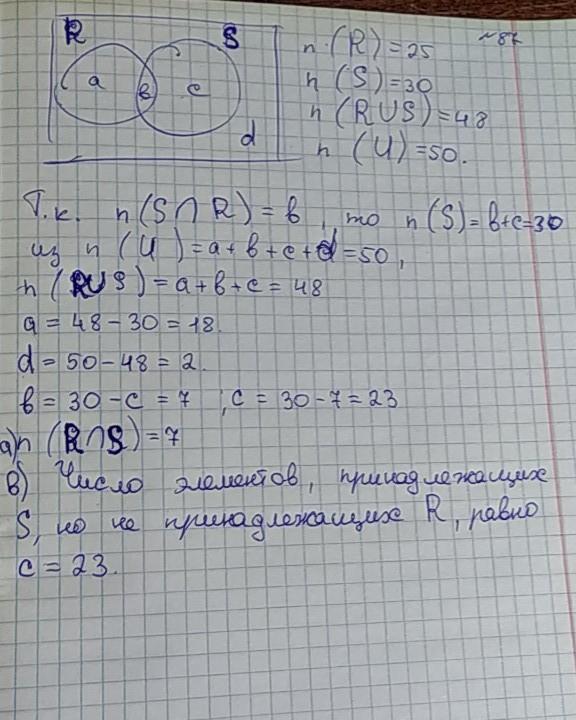 R
S
a
в
c
d
n (R) = 25
~87
n (S) = 30
n (R∪S) = 48
n (U) = 50.
Т.к. n (S∩R) = в, то n(S) = в+c=30
из n (U) = a+в+c+d=50,
n (R∪S) = a+в+c = 48
a = 48-30 = 18.
d = 50-48 = 2.
в = 30-c = 7 ; c = 30-7=23
а) n (R∩S) = 7
в) Число элементов, принадлежащих
S, но не принадлежащих R, равно
c = 23.